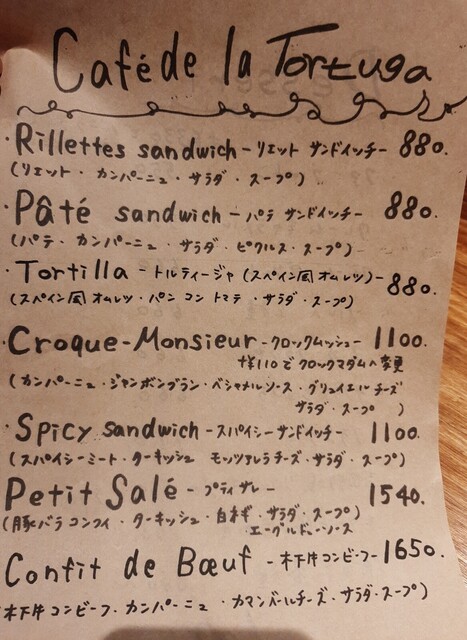 Café de la Tortuga
・Rillettes sandwich - リエット サンドイッチ - 880.
(リエット・カンパーニュ・サラダ・スープ)
・Pâté sandwich - パテ サンドイッチ - 880.
(パテ・カンパーニュ・サラダ・ピクルス・スープ)
・Tortilla - トルティージャ (スペイン風オムレツ) - 880.
(スペイン風オムレツ・パン コン トマテ・サラダ・スープ)
・Croque-Monsieur - クロックムッシュー - 1100.
+¥110でクロックマダムへ変更
(カンパーニュ・ジャンボンブラン・ベシャメルソース・グリュイエルチーズ
サラダ・スープ)
・Spicy sandwich - スパイシーサンドイッチ - 1100.
(スパイシーミート・ターキッシュ モッツァレラチーズ・サラダ・スープ)
Petit Salé - プティサレ - 1540.
(豚バラコンフィ・ターキッシュ・白ネギ・サラダ・スープ)
エーグルドゥーソース
Confit de Bœuf - 木下牛コンビーフ - 1650.
木下牛コンビーフ・カンパーニュ・カマンベールチーズ・サラダ・スープ)